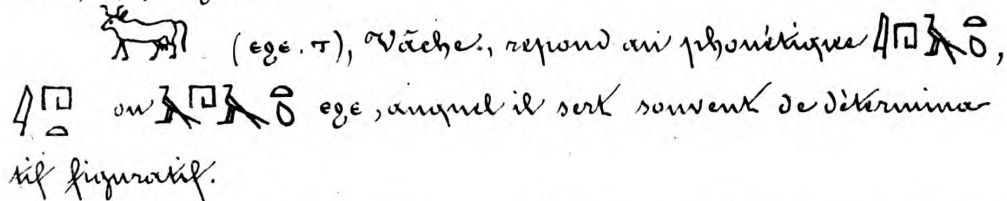 𓃒 (ⲉϩⲉ.ⲧ), Vâche., répond au phonétique 𓇋𓉔𓄿𓏏𓆇,
𓇋𓉔𓏏 ou 𓄿𓉔𓄿𓏏𓆇 ⲉϩⲉ, auquel il sert souvent de détermina
tif figuratif.